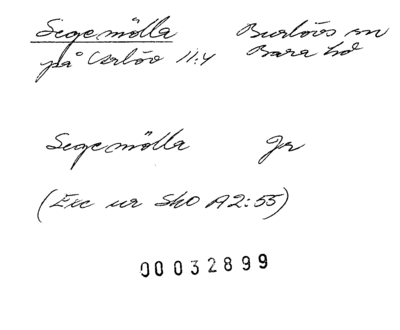 Segemölla Burlövs sn
på Arlöv 11:4 Bara hd
Segemölla Gr
(Exc ur SkO A2:55)
00032899